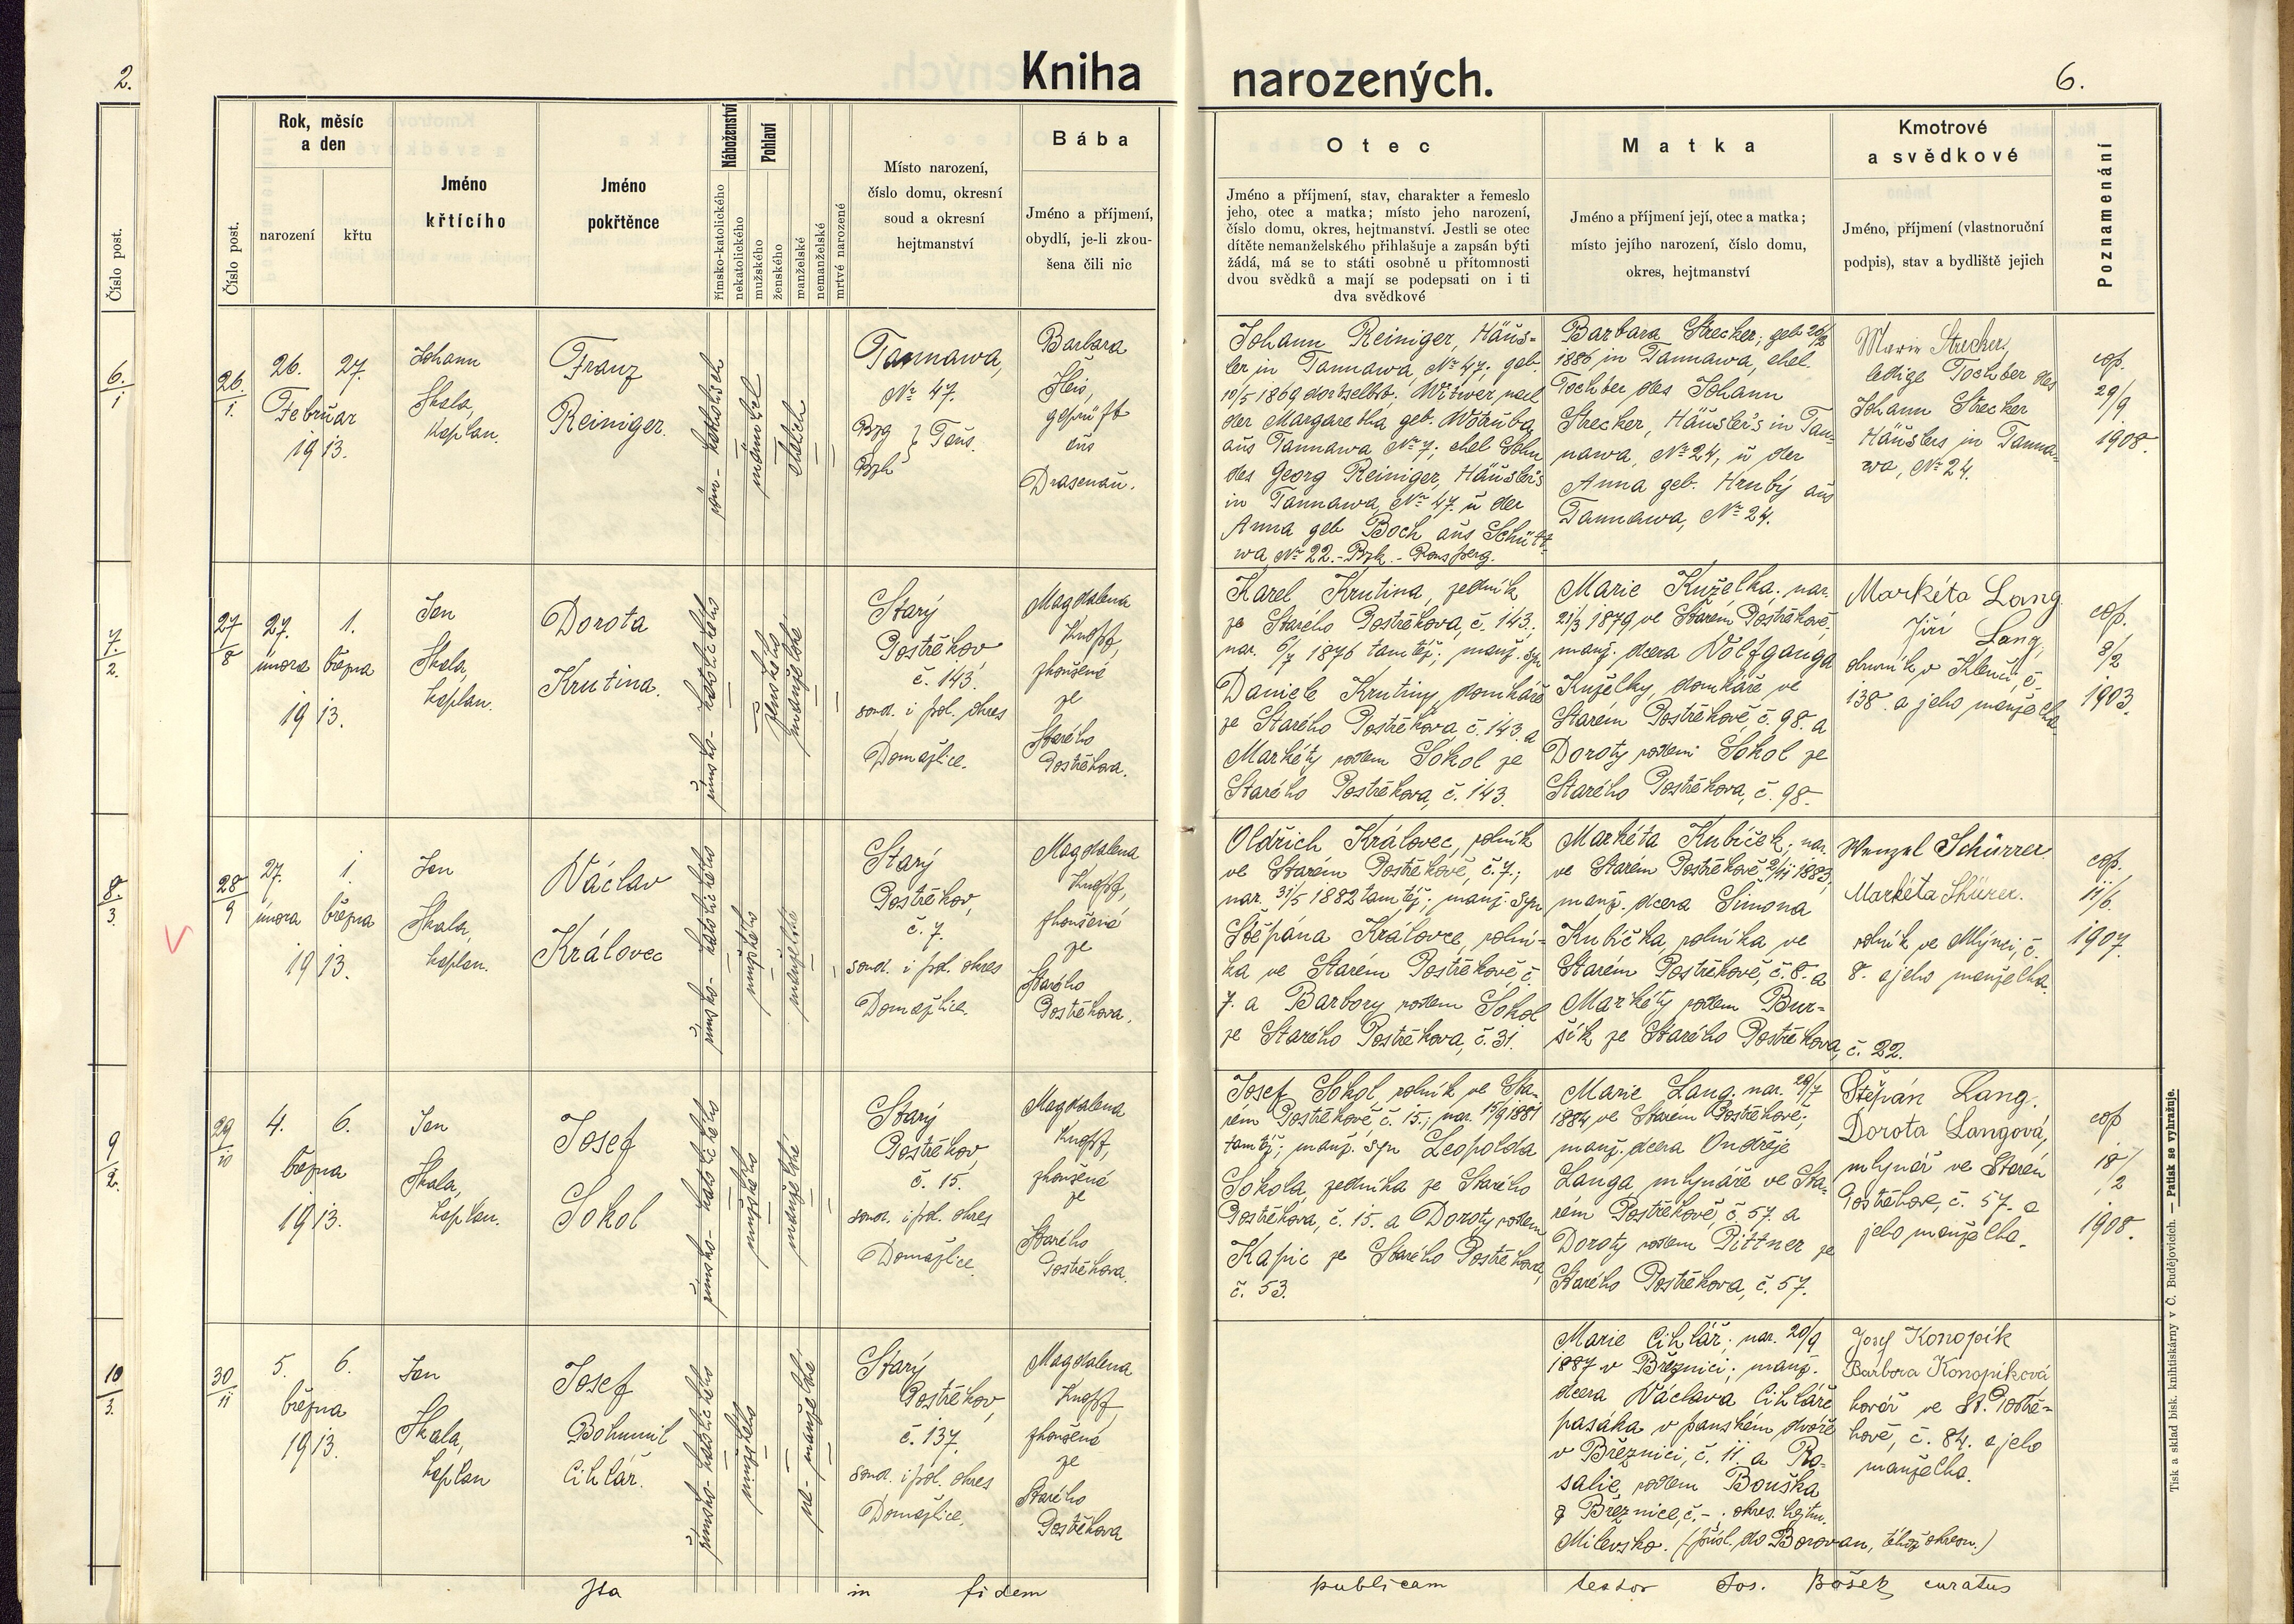 2.
Kniha narozených.
6.
Číslo post.
6./1
7./2.
8./3.
9/2.
10/3.
Číslo post.
Rok, měsíc
a den
narození
křtu
Jméno
křtícího
Jméno
pokřtěnce
Náboženství
římsko-katolického
nekatolického
Pohlaví
mužského
ženského
manželské
nemanželské
mrtvé narozené
Místo narození,
číslo domu, okresní
soud a okresní
hejtmanství
Bába
Jméno a příjmení,
obydlí, je-li zkou-
šena čili nic
Otec
Jméno a příjmení, stav, charakter a řemeslo
jeho, otec a matka; místo jeho narození,
číslo domu, okres, hejtmanství. Jestli se otec
dítěte nemanželského přihlašuje a zapsán býti
žádá, má se to státi osobně u přítomnosti
dvou svědků a mají se podepsati on i ti
dva svědkové
Matka
Jméno a příjmení její, otec a matka;
místo jejího narození, číslo domu,
okres, hejtmanství
Kmotrové
a svědkové
Jméno, příjmení (vlastnoruční
podpis), stav a bydliště jejich
Poznamenání
26/1.
26. 27.
Februar
1913.
Johann
Skala,
Kaplan.
Franz
Reiniger.
röm-katholisch
männlich
ehelich
Tannawa,
No 47.
Bzg } Taus.
Bzh
Barbara
Heis,
geprüft
aus
Drasenau.
Johann Reiniger, Häus-
ler in Tannawa, No 47; geb.
10/5 1869 dortselbst. Witwer nach
der Margaretha geb. Wotruba
aus Tannawa No 7; ehel Sohn
des Georg Reiniger, Häuslers
in Tannawa, No 47. u der
Anna geb Boch aus Schütt-
wa, No 22. - Bzh. - Ronsperg.
Barbara Strecher; geb 26/2
1886 in Tannawa, ehel.
Tochter des Johann
Strecher, Häuslers in Tan-
nawa, No 24, u der
Anna geb. Hruby aus
Tannawa, No 24.
Marie Strecher,
ledige Tochter des
Johann Strecher
Häuslers in Tanna-
wa, No 24.
cop.
29/9
1908.
27/8
27. 1.
února března
1913.
Jan
Skala,
kaplan.
Dorota
Krutina.
římsko-katolického
ženského
manželské
Starý
Postřekov
č. 143.
soud. i pol. okres
Domažlice.
Magdalena
Knopf,
zkoušená
ze
Starého
Postřekova.
Karel Krutina, sedlník
ze Starého Postřekova, č. 143.;
nar. 6/7 1876 tamtéž; manž. syn
Daniele Krutiny, domkáře
ze Starého Postřekova č. 143. a
Markéty rodem Sokol ze
Starého Postřekova, č. 143.
Marie Kuželka; nar.
21/3 1879 ve Starém Postřekově,
manž. dcera Wolfganga
Kuželky, domkáře ve
Starém Postřekově, č. 98. a
Doroty rodem Sokol ze
Starého Postřekova, č. 98.
Markéta Lang
Jiří Lang,
obuvník v Klenčí, č.
138. a jeho manželka
cop.
8/2
1903.
28/9
27. 1.
února března
1913.
Jan
Skala,
kaplan.
Václav
Královec
římsko-katolického
mužského
manželské
Starý
Postřekov,
č. 7.
soud. i pol. okres
Domažlice.
Magdalena
Knopf,
zkoušená
ze
Starého
Postřekova.
Oldřich Královec, rolník
ve Starém Postřekově, č. 7.;
nar. 31/5 1882 tamtéž; manž. syn
Štěpána Královce, rolní-
ka ve Starém Postřekově, č.
7. a Barbory rodem Sokol
ze Starého Postřekova, č. 31.
Markéta Kubíček; nar.
ve Starém Postřekově 2/11 1883,
manž. dcera Šimona
Kubíčka rolníka ve
Starém Postřekově, č. 8. a
Markéty rodem Bur-
šík ze Starého Postřekova, č. 22.
Wenzel Schürrer
Markéta Shürer.
rolník ve Mlýnci, č.
8. a jeho manželka.
cop.
11/6.
1907.
29/10
4. 6.
března
1913.
Jan
Skala,
kaplan.
Josef
Sokol
římsko-katolického
mužského
manželské
Starý
Postřekov,
č. 15.
soud. i pol. okres
Domažlice.
Magdalena
Knopf,
zkoušená
ze
Starého
Postřekova.
Josef Sokol, rolník ve Sta-
rém Postřekově č. 15.; nar. 15/9 1881
tamtéž; manž. syn Leopolda
Sokola, sedlníka ze Starého
Postřekova, č. 15. a Doroty rodem
Kapic ze Starého Postřekova,
č. 53.
Marie Lang; nar. 29/7
1884 ve Starém Postřekově;
manž. dcera Ondřeje
Langa mlynáře ve Sta-
rém Postřekově, č. 57. a
Doroty rodem Pittner ze
Starého Postřekova, č. 57.
Štěpán Lang.
Dorota Langová,
mlynář ve Starém
Postřekově, č. 57. a
jeho manželka.
cop
18/2
1908.
30/11
5. 6.
března
1913.
Jan
Skala,
kaplan
Josef
Bohumil
Cihlář.
římsko-katolického
mužského
ne-manželské
Starý
Postřekov,
č. 137.
soud. i pol. okres
Domažlice.
Magdalena
Knopf,
zkoušená
ze
Starého
Postřekova
Marie Cihlář; nar. 20/9
1887 v Březnici; manž.
dcera Václava Cihláře
pasáka v panském dvoře
v Březnici, č. 11. a Ro-
salie, rodem Bouška
z Březnice, č. -; okres. hejtm.
Milevsko. (přísl. do Borovan, téhož okresu.)
Josef Konopík
Barbora Konopíková
kovář ve St. Postře-
kově, č. 84. a jeho
manželka.
Ita in fidem publicam testor Jos. Bošek, curatus
Tisk a sklad bisk. knihtiskárny v Č. Budějovicích. — Patisk se vyhražuje.